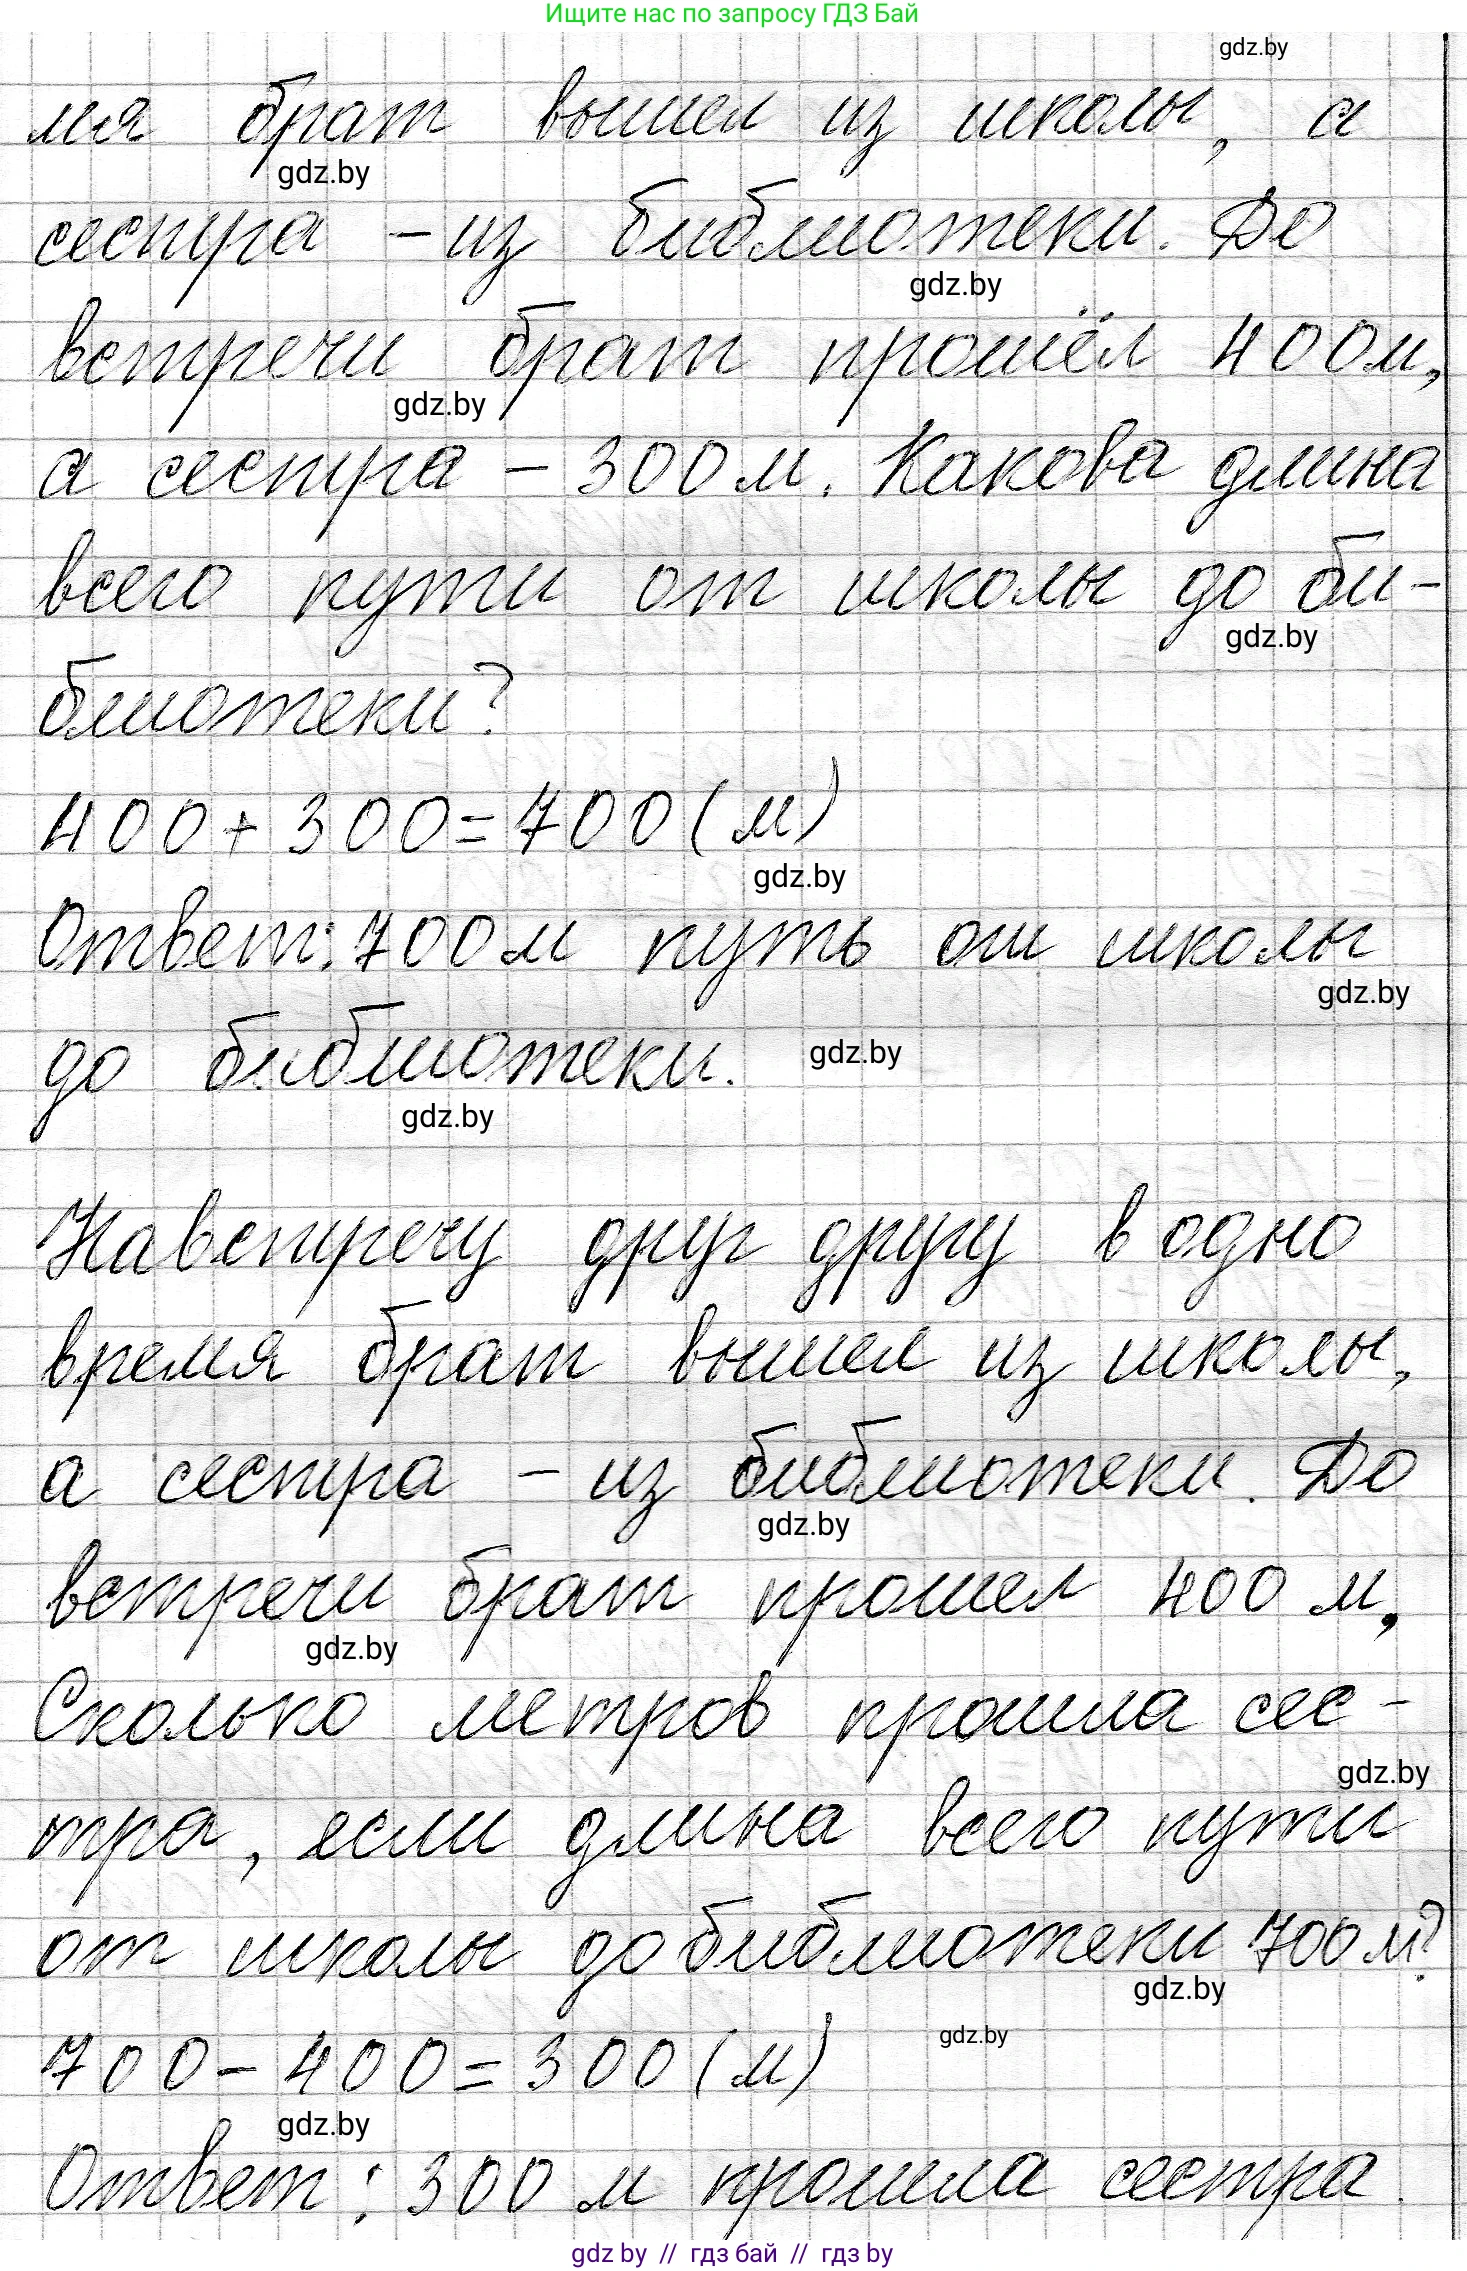 Ищите нас по запросу ГДЗ Бай
gdz.by
мя брат вышел из школы, а
gdz.by
сестра – из библиотеки. До
gdz.by
встречи брат прошёл 400м,
gdz.by
а сестра – 300м. Какова длина
всего пути от школы до би-
gdz.by
блиотеки?
400+300=700(м)
gdz.by
Ответ: 700м путь от школы
gdz.by
до библиотеки.
gdz.by
gdz.by
Навстречу друг другу в одно
время брат вышел из школы,
а сестра – из библиотеки. До
gdz.by
встречи брат прошел 400 м,
gdz.by
Сколько метров прошла сес-
gdz.by
тра, если длина всего пути
от школы до библиотеки 700м?
gdz.by
700–400=300(м)
gdz.by
gdz.by
Ответ: 300 м прошла сестра.
gdz by // гдз бай // гдз by